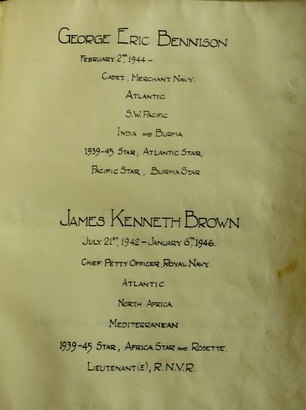 George Eric Bennison
February 2nd 1944 -
Cadet, Merchant Navy.
Atlantic
S.W. Pacific
India and Burma
1939-45 Star, Atlantic Star,
Pacific Star, Burma Star
James Kenneth Brown
July 21st, 1942 - January 6th, 1946.
Chief Petty Officer, Royal Navy.
Atlantic
North Africa
Mediterranean
1939-45 Star, Africa Star and Rosette.
Lieutenant (E), R.N.V.R.